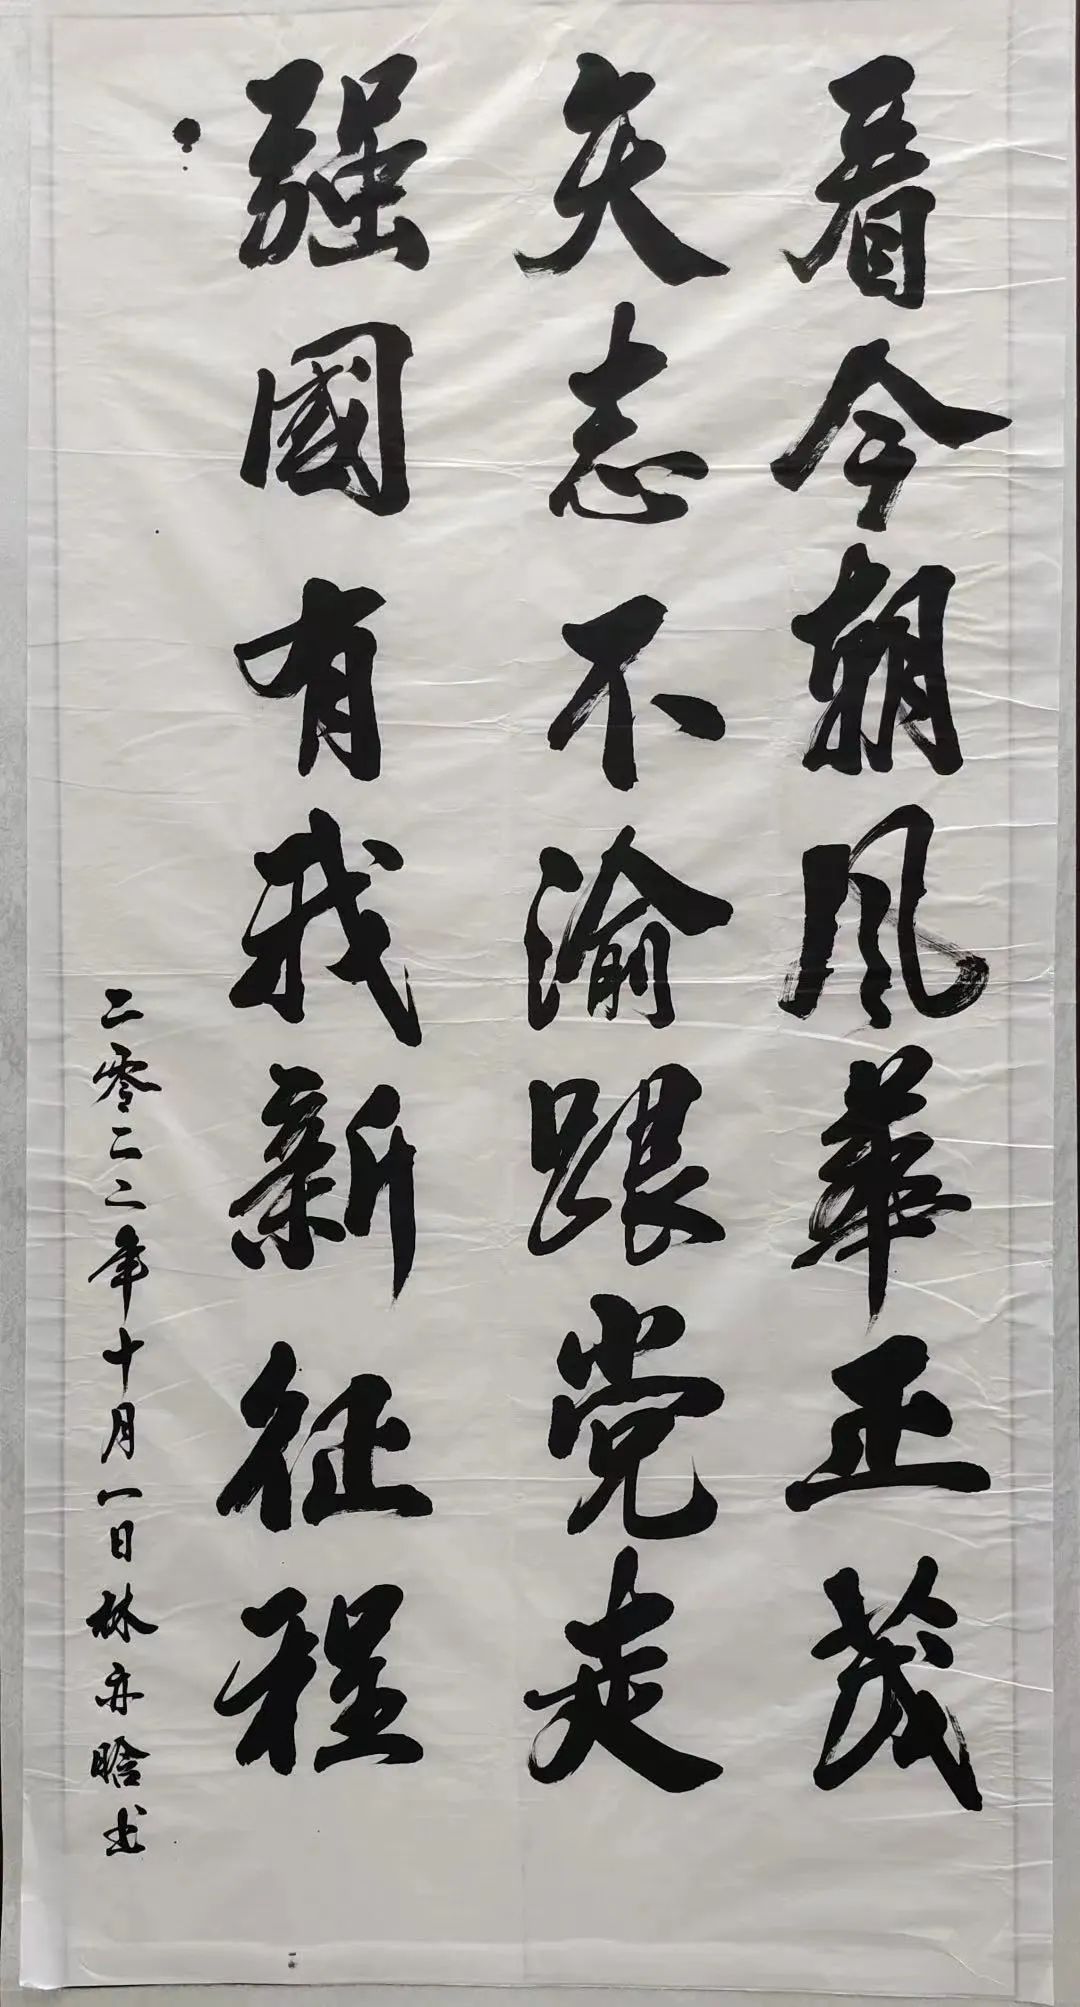 看今朝风華正茂
矢志不渝跟党走
强國有我新征程
二零二二年十月一日林亦晗书